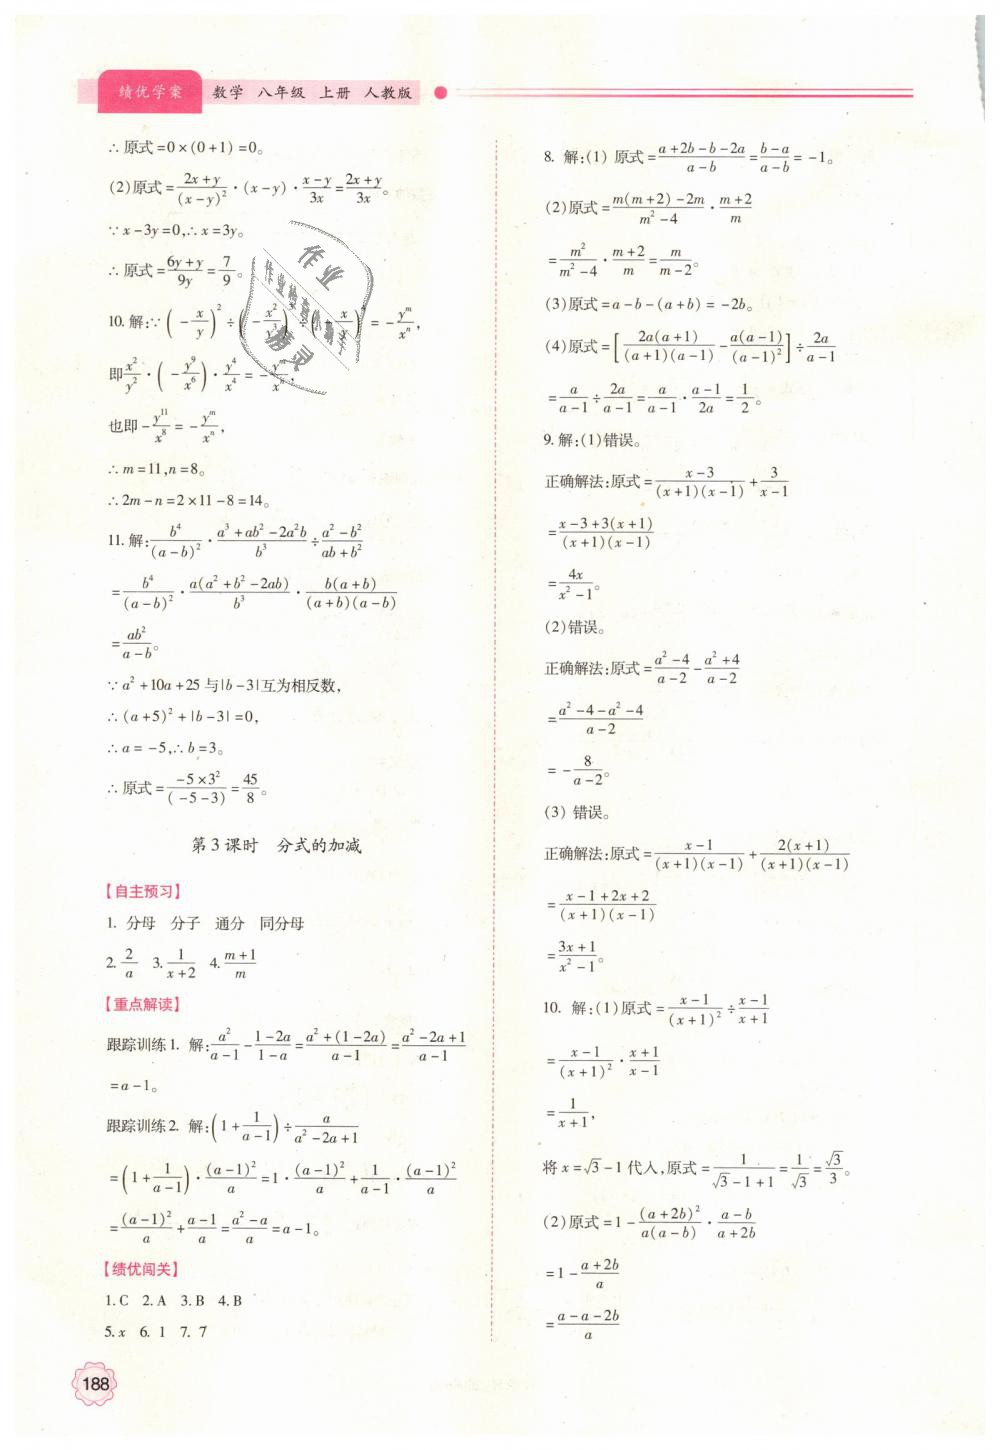 绩优学案 数学 八年级 上册 人教版
∴原式=0×(0+1)=0。
(2)原式=\frac{2x+y}{(x-y)^2}·(x-y)·\frac{x-y}{3x}=\frac{2x+y}{3x}。
∵x-3y=0,∴x=3y。
∴原式=\frac{6y+y}{9y}=\frac{7}{9}。
10. 解:∵(-\frac{x}{y})^2÷(-\frac{x^2}{y^3})^3÷(-\frac{x}{y})^4=-\frac{y^m}{x^n},
即\frac{x^2}{y^2}·(-\frac{y^9}{x^6})·\frac{y^4}{x^4}=-\frac{y^m}{x^n},
也即-\frac{y^{11}}{x^8}=-\frac{y^m}{x^n},
∴m=11,n=8。
∴2m-n=2×11-8=14。
11. 解:\frac{b^4}{(a-b)^2}·\frac{a^3+ab^2-2a^2b}{b^3}÷\frac{a^2-b^2}{ab+b^2}
=\frac{b^4}{(a-b)^2}·\frac{a(a^2+b^2-2ab)}{b^3}·\frac{b(a+b)}{(a+b)(a-b)}
=\frac{ab^2}{a-b}。
∵a^2+10a+25与|b-3|互为相反数,
∴(a+5)^2+|b-3|=0,
∴a=-5,∴b=3。
∴原式=\frac{-5×3^2}{(-5-3)}=\frac{45}{8}。
第3课时 分式的加减
【自主预习】
1. 分母 分子 通分 同分母
2. \frac{2}{a} 3. \frac{1}{x+2} 4. \frac{m+1}{m}
【重点解读】
跟踪训练1. 解:\frac{a^2}{a-1}-\frac{1-2a}{1-a}=\frac{a^2+(1-2a)}{a-1}=\frac{a^2-2a+1}{a-1}
=a-1。
跟踪训练2. 解:(1+\frac{1}{a-1})÷\frac{a}{a^2-2a+1}
=(1+\frac{1}{a-1})·\frac{(a-1)^2}{a}=1·\frac{(a-1)^2}{a}+\frac{1}{a-1}·\frac{(a-1)^2}{a}
=\frac{(a-1)^2}{a}+\frac{a-1}{a}=\frac{a^2-a}{a}=a-1。
【绩优闯关】
1. C 2. A 3. B 4. B
5. x 6. 1 7. 7
188
8. 解:(1)原式=\frac{a+2b-b-2a}{a-b}=\frac{b-a}{a-b}=-1。
(2)原式=\frac{m(m+2)-2m}{m^2-4}·\frac{m+2}{m}
=\frac{m^2}{m^2-4}·\frac{m+2}{m}=\frac{m}{m-2}。
(3)原式=a-b-(a+b)=-2b。
(4)原式=[\frac{2a(a+1)}{(a+1)(a-1)}-\frac{a(a-1)}{(a-1)^2}]÷\frac{2a}{a-1}
=\frac{a}{a-1}÷\frac{2a}{a-1}=\frac{a}{a-1}·\frac{a-1}{2a}=\frac{1}{2}。
9. 解:(1)错误。
正确解法:原式=\frac{x-3}{(x+1)(x-1)}+\frac{3}{x-1}
=\frac{x-3+3(x+1)}{(x+1)(x-1)}
=\frac{4x}{x^2-1}。
(2)错误。
正确解法:原式=\frac{a^2-4}{a-2}-\frac{a^2+4}{a-2}
=\frac{a^2-4-a^2-4}{a-2}
=-\frac{8}{a-2}。
(3)错误。
正确解法:原式=\frac{x-1}{(x+1)(x-1)}+\frac{2(x+1)}{(x+1)(x-1)}
=\frac{x-1+2x+2}{(x+1)(x-1)}
=\frac{3x+1}{x^2-1}。
10. 解:(1)原式=\frac{x-1}{(x+1)^2}÷\frac{x-1}{x+1}
=\frac{x-1}{(x+1)^2}·\frac{x+1}{x-1}
=\frac{1}{x+1},
将x=\sqrt{3}-1代入,原式=\frac{1}{\sqrt{3}-1+1}=\frac{1}{\sqrt{3}}=\frac{\sqrt{3}}{3}。
(2)原式=1-\frac{(a+2b)^2}{a(a-b)}·\frac{a-b}{a+2b}
=1-\frac{a+2b}{a}
=\frac{a-a-2b}{a}
作业
精灵